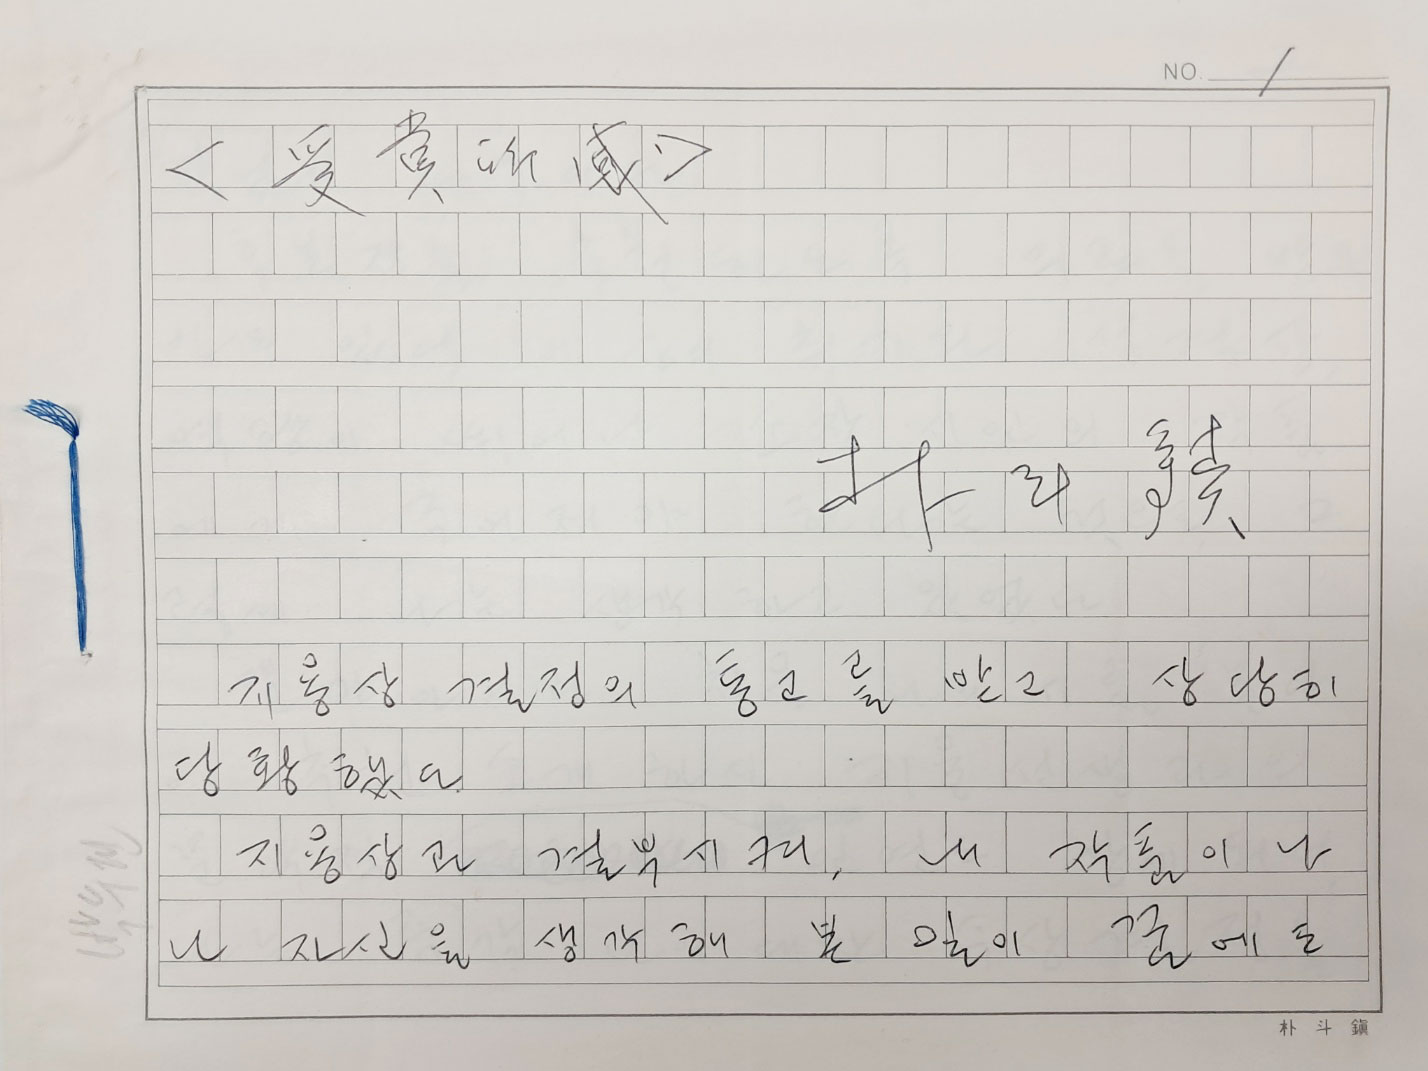 NO. 1
<受賞所感>
朴斗鎭
지용상 결정의 통고를 받고 상당히
당황했다.
지용상과 결부시켜, 내 작품이나
나 자신을 생각해 본 일이 꿈에도
朴斗鎭